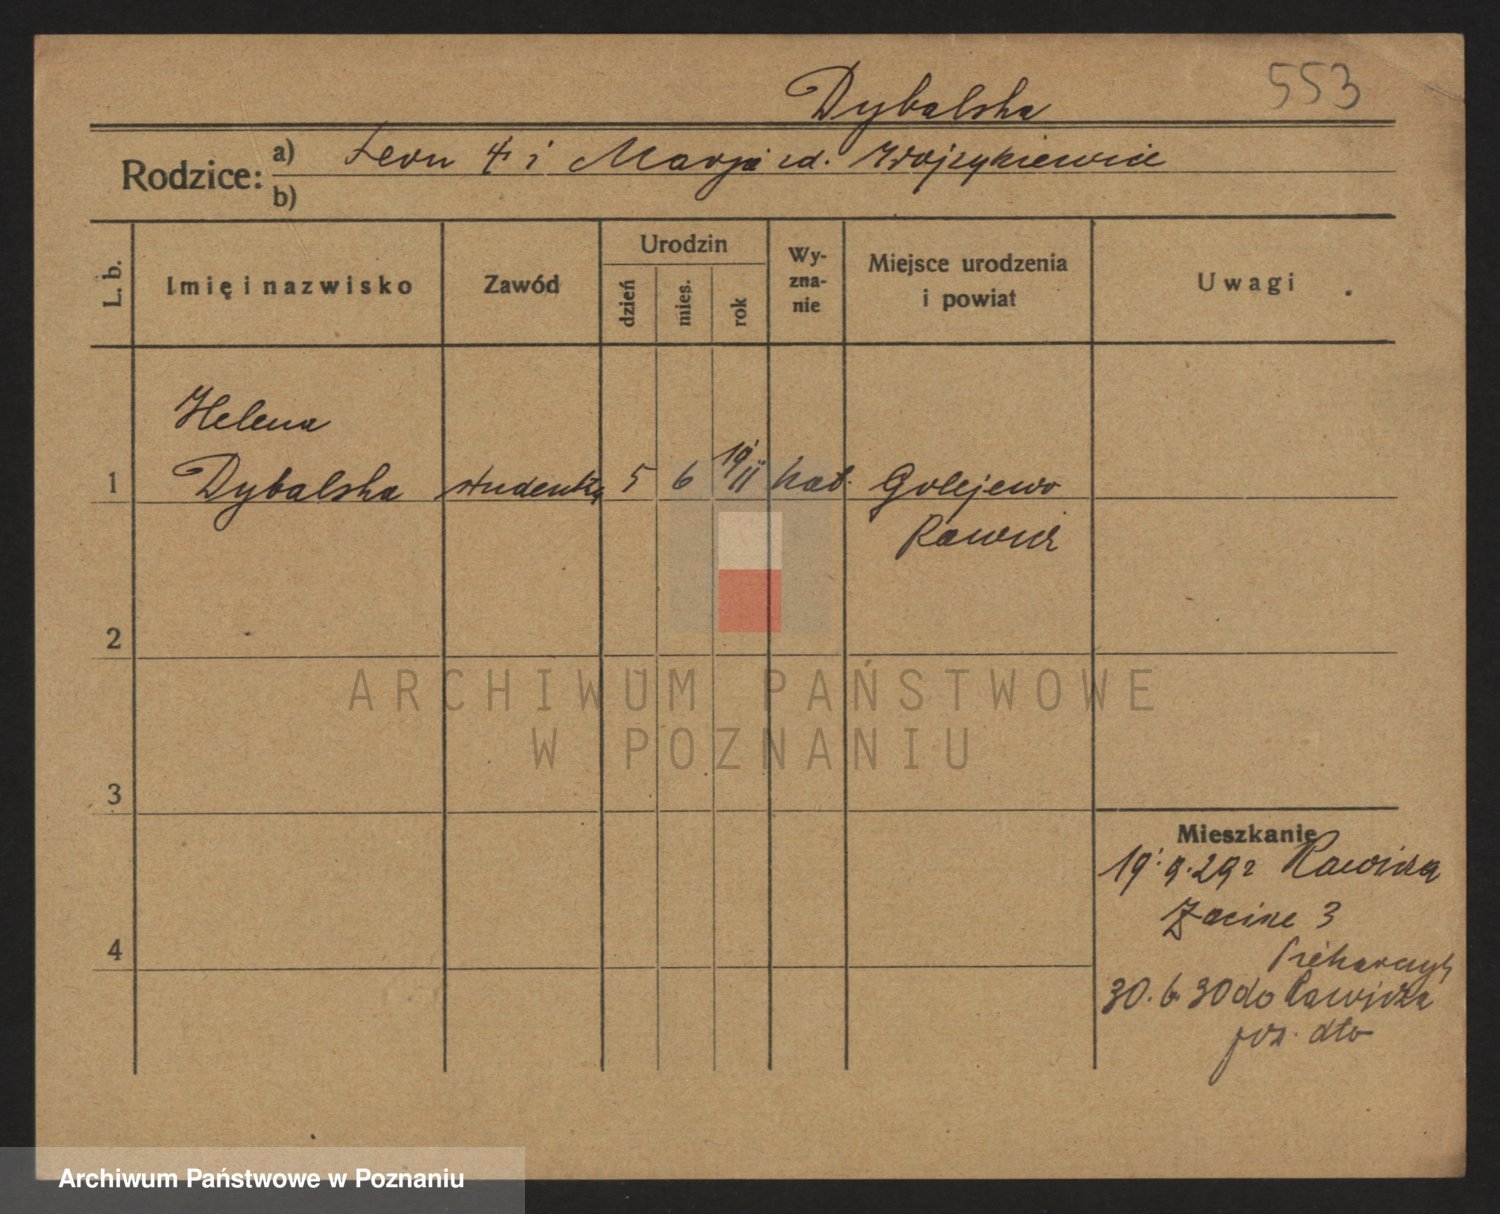 553
Dybalska
Rodzice: a) Leon i Marja
b)
L. b.
Imię i nazwisko
Zawód
Urodzin
dzień
mies.
rok
Wy-
zna-
nie
Miejsce urodzenia
i powiat
Uwagi
Helena
1 Dybalska studentka 5 6 19/11 kat. Golejewo
Rawicz
2
ARCHIWUM PAŃSTWOWE
W POZNANIU
3
Mieszkanie
19.9.29 r Rawicza
3
4
30.6.30 do Rawicza
dto
Archiwum Państwowe w Poznaniu